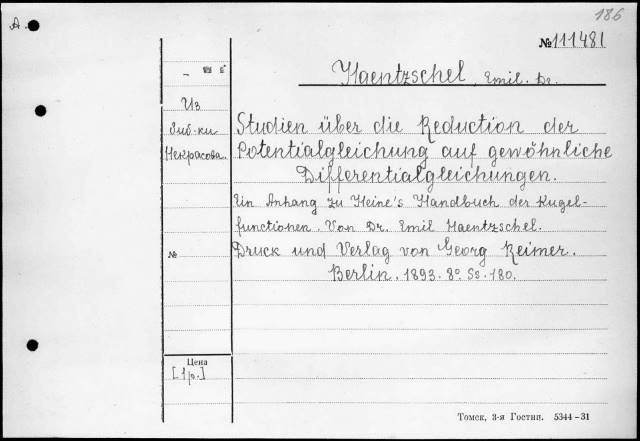 186
А.
№111481
Haentzschel, Emil. Dr.
Из
биб-ки
Некрасова
Studien über die Reduction der
Potentialgleichung auf gewöhnliche
Differentialgleichungen.
Ein Anhang zu Heine's Handbuch der Kugel-
functionen. Von Dr. Emil Haentzschel.
Druck und Verlag von Georg Reimer.
Berlin. 1893. 8° Ss. 180.
№
Цена
[1р.]
Томск, 3-я Гостип. 5344-31